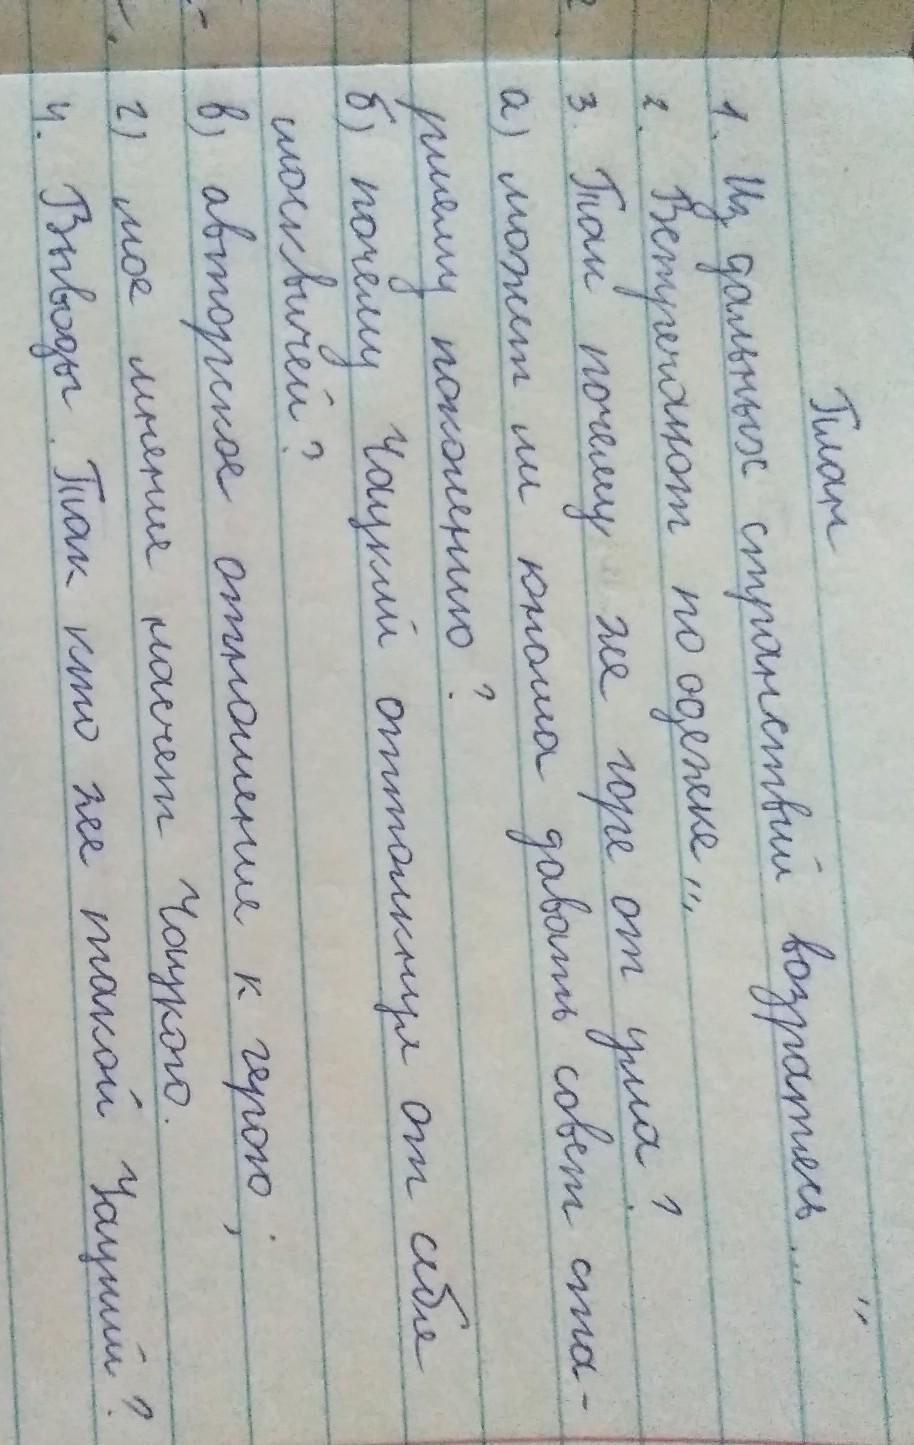 План
1. Из дальных странствий возратясь... "
2. Встречают по одежке...
3. Так почему же горе от ума?
а) может ли юноша давать совет ста-
ршему поколению?
б) почему Чацкий оттолкнул от себя
москвичей?
в) авторское отношение к герою;
г) мое мнение насчет Чацкого.
4. Выводы. Так кто же такой Чацкий?